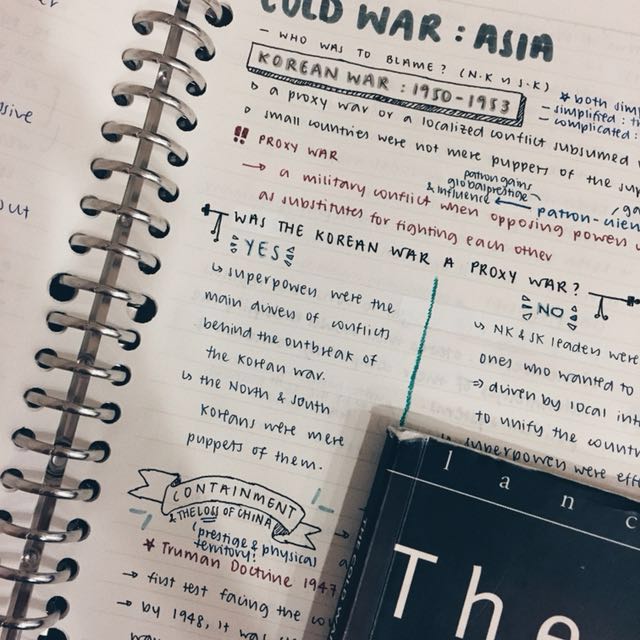 COLD WAR : ASIA
- WHO WAS TO BLAME? (N.K vs S.K)
KOREAN WAR : 1950-1953
* both
- simplified :
- complicated :
▷ a proxy war or a localized conflict subsumed
▷ small countries were not mere puppets of the
!! PROXY WAR
→ a military conflict when opposing powers
as substitutes for fighting each other
patron gains
global prestige
& influence ← patron-
WAS THE KOREAN WAR A PROXY WAR?
YES
↳ superpowers were the
main drivers of conflicts
behind the outbreak of
the Korean war.
↳ the North & South
Koreans were mere
puppets of them.
NO
↳ NK & SK leaders were
ones who wanted to
⇒ driven by local
to unify the
↳ superpowers were
CONTAINMENT
& THE LOSS OF CHINA
(prestige & physical
territory!
* Truman Doctrine 1947
→ first test facing the
→ by 1948, it was
out
l a n c
The